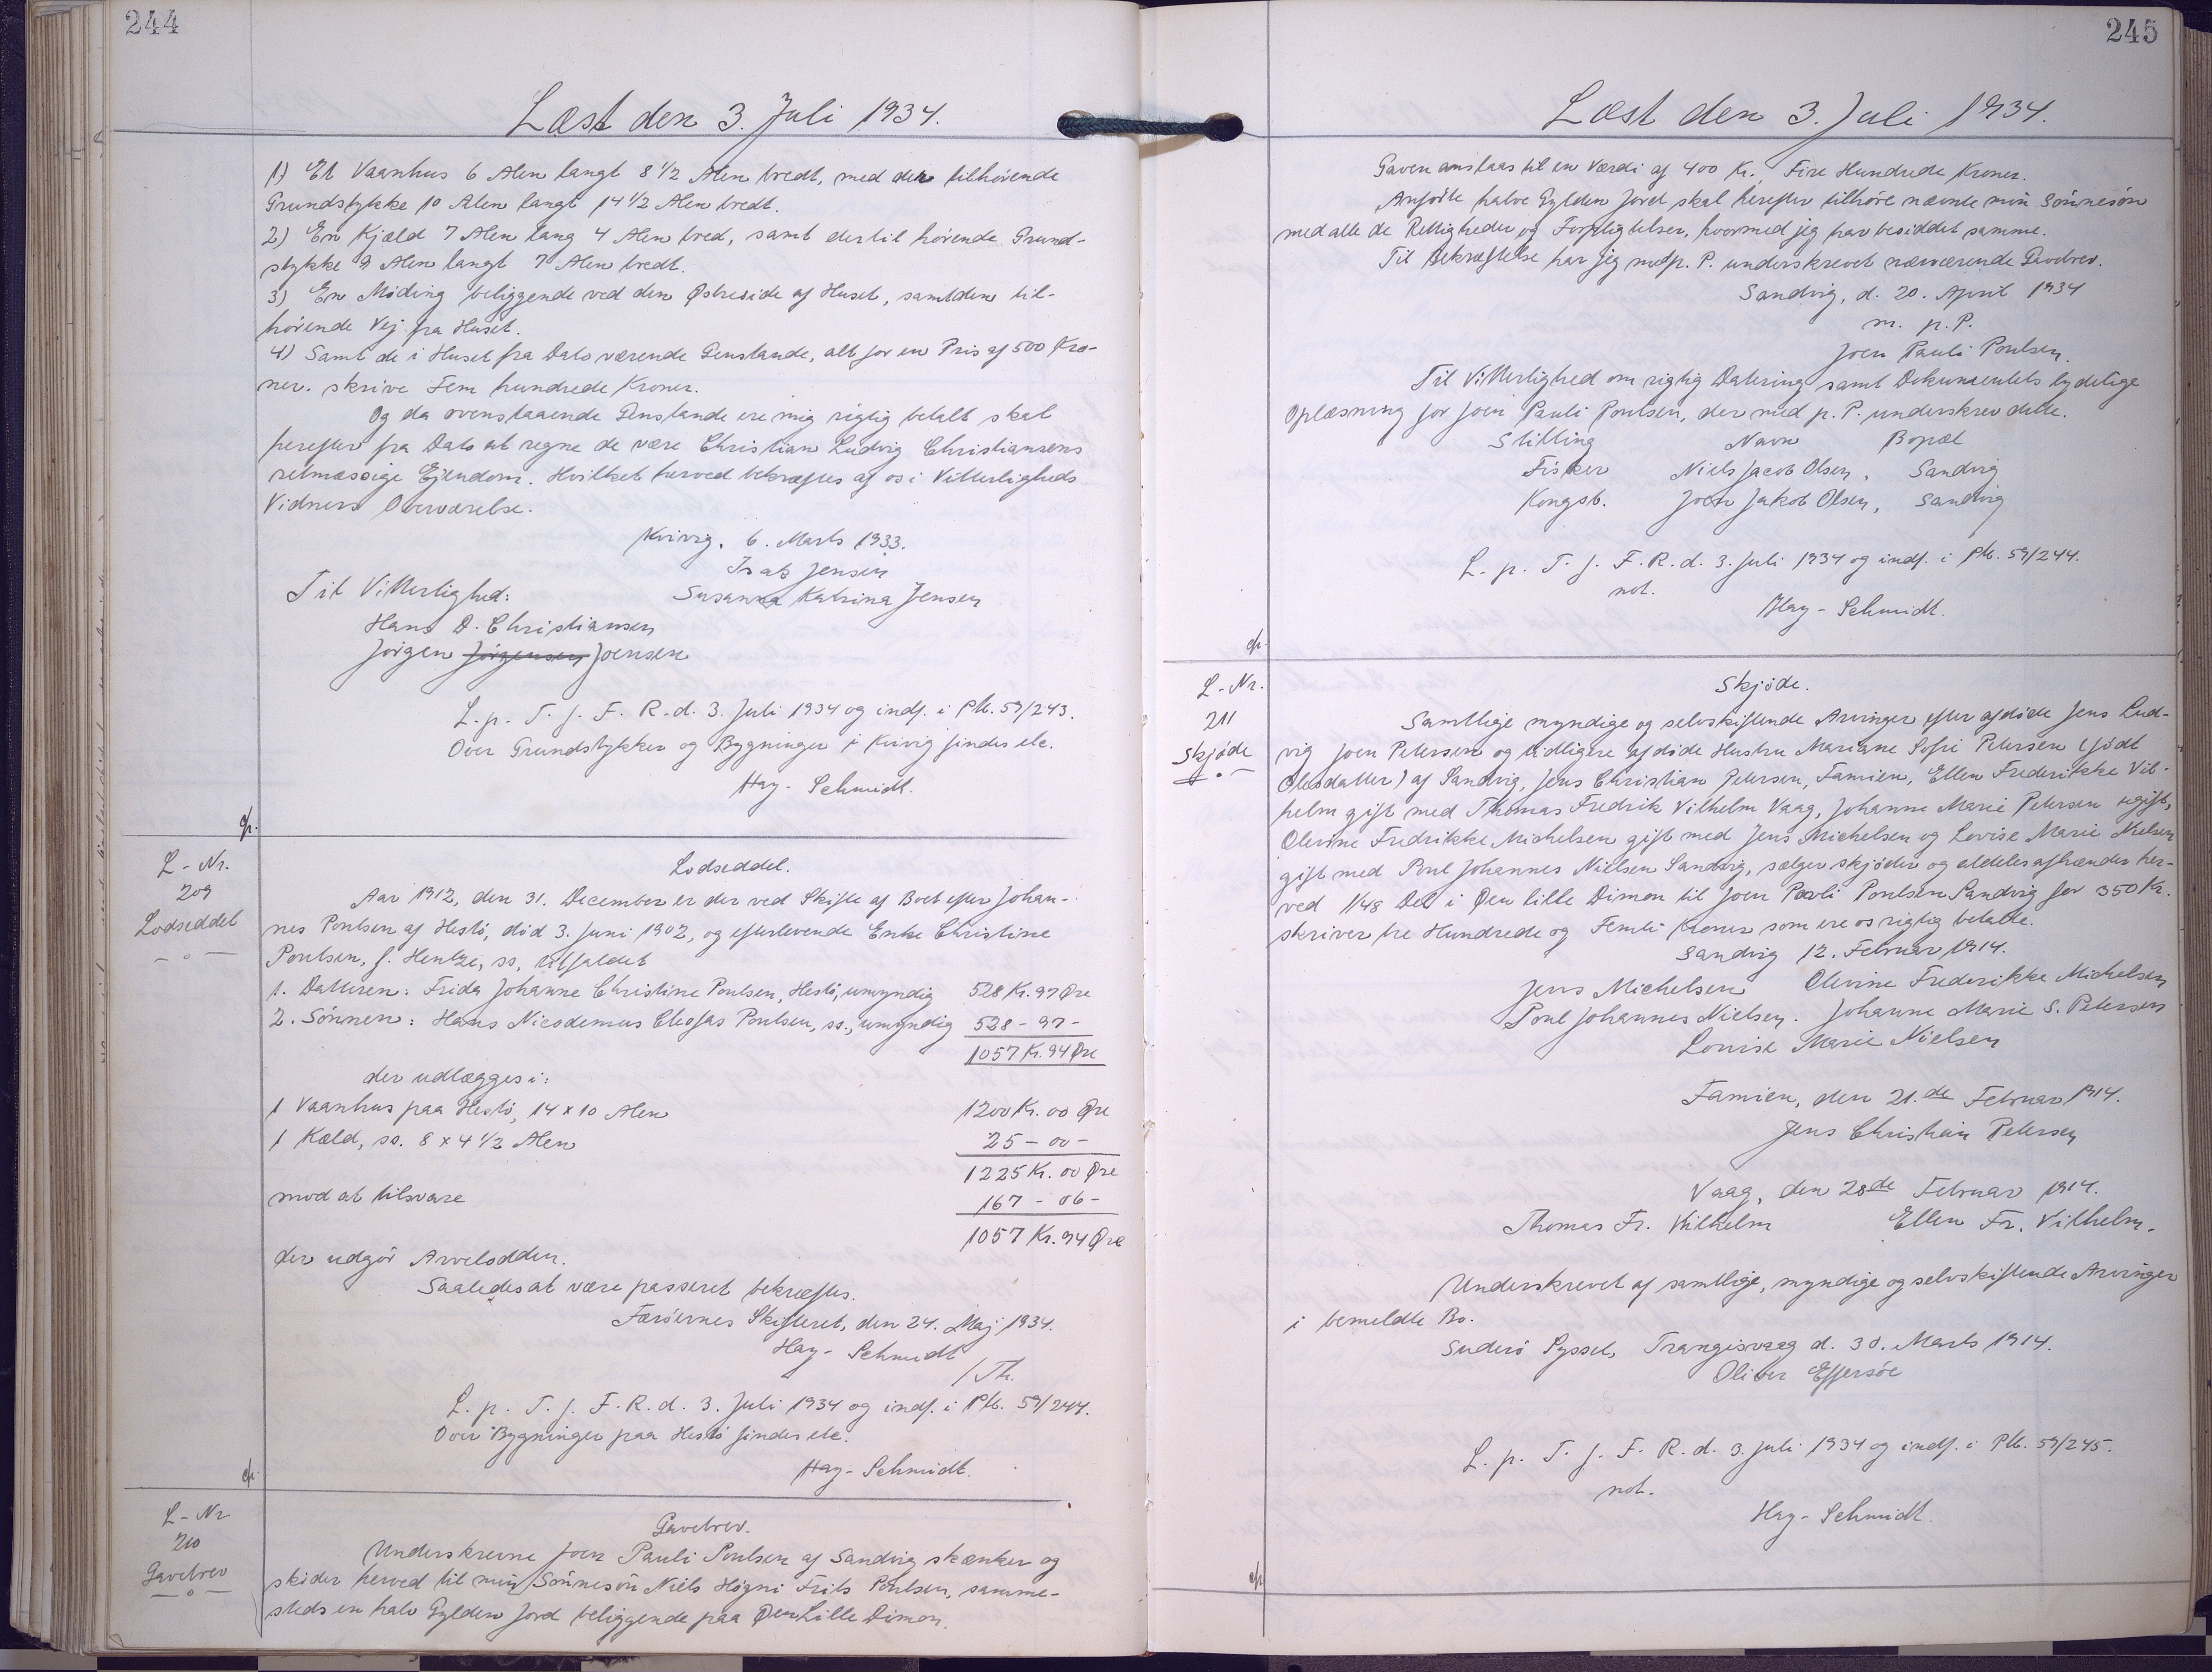 244
Læst den 3. Juli 1934.
1) Et Vaanhus 6 Alen langt 8 1/2 Alen bredt, med den tilhörende
Grundstykke 10 Alen langt 14 1/2 Alen bredt.
2) En Kjæld 7 Alen lang 4 Alen bred, samt dertil hörende Grund-
stykke 9 Alen langt 7 Alen bredt.
3) En Möding beliggende ved den Østre side af Huset, samt den til-
hörende Vej fra Huset.
4) Samt de i Huset fra Dato værende Genstande, alt for en Pris af 500 Kro-
ner. skrive Fem hundrede Kroner.
Og da ovenstaaende Genstande ere mig rigtig betalt skal
herefter fra Dato at regne de være Christian Ludvig Christiansens
retmæssige Ejendom. Hvilket herved bekræftes af os i Vitterligheds
Vidners Overværelse.
Kvivig, 6. Marts 1933.
Isak Jensen
Til Vitterlighed: Susanna Katrina Jensen
Hans D. Christiansen
Jörgen Jörgensen Joensen
L. p. T. f. F. R. d. 3. Juli 1934 og indf. i Pb. 59/243.
Over Grundstykker og Bygninger i Kvivig findes ele.
Hay-Schmidt.
cfr.
L-Nr.
209
Lodseddel
Lodseddel.
Aar 1912, den 31. December er der ved Skifte af Boet efter Johan-
nes Poulsen af Hestö, död 3. Juni 1902, og efterlevende Enke Christine
Poulsen, f. Hentze, ss, tilfaldet
1. Datteren: Frida Johanne Christine Poulsen, Hestö, umyndig 528 Kr. 97 Øre
2. Sönnen: Hans Nicodemus Cleofas Poulsen, ss., umyndig 528 - 97 -
1057 Kr. 94 Øre
der udlægges i:
1 Vaanhus paa Hestö, 14 x 10 Alen 1200 Kr. 00 Øre
1 Kæld, ss. 8 x 4 1/2 Alen 25 - 00 -
1225 Kr. 00 Øre
mod at tilsvare 167 - 06 -
1057 Kr. 94 Øre
der udgör Arvelodden.
Saaledes at være passeret bekræftes.
Færöernes Skifteret, den 24. Maj 1934.
Hay-Schmidt
/Th.
L. p. T. f. F. R. d. 3. Juli 1934 og indf. i Pb. 59/244.
Over Bygninger paa Hestö findes ele.
Hay-Schmidt.
cfr.
L-Nr
210
Gavebrev
Gavebrev.
Underskrevne Joen Pauli Poulsen af Sandvig skænker og
skider herved til min Sönnesön Niels Högni Frits Poulsen, samme-
steds en halv Gylden Jord beliggende paa Øen Lille Dimon.
245
Læst den 3. Juli 1934.
Gaven anslaas til en Værdi af 400 Kr., Fire Hundrede Kroner.
Anförte halve Gylden Jord skal herefter tilhöre nævnte min Sönnesön
med alle de Rettigheder og Forpligtelser, hvormed jeg har besiddet samme.
Til Bekræftelse har jeg med p. P. underskrevet nærværende Gavebrev.
Sandvig, d. 20. April 1934
m. p. P.
Joen Pauli Poulsen.
Til Vitterlighed om rigtig Datering samt Dokumentets lydelige
Oplæsning for Joen Pauli Poulsen, der med p. P. underskrev dette.
Stilling Navn Bopæl
Fisker Niels Jacob Olsen, Sandvig
Kongsb. Joen Jakob Olsen, Sandvig
L. p. T. f. F. R. d. 3. Juli 1934 og indf. i Pb. 59/244.
not.
Hay-Schmidt.
cfr.
L-Nr.
211
Skjöde
Skjöde.
Samtlige myndige og selvskiftende Arvinger efter afdöde Jens Lud-
vig Joen Petersen og tidligere afdöde Hustru Mariane Sofri Petersen (födt
Olesdatter) af Sandvig, Jens Christian Petersen, Famien, Ellen Frederikke Vil-
helm gift med Thomas Fredrik Vilhelm Vaag, Johanne Marie Petersen ugift,
Olevine Fredrikke Michelsen gift med Jens Michelsen og Lovise Marie Nielsen
gift med Poul Johannes Nielsen Sandvig, sælger skjöder og aldeles afhænder her-
ved 1/48 Del i Øen lille Dimon til Joen Pavli Poulsen Sandvig for 350 Kr.
skriver tre Hundrede og Femti Kroner som ere os rigtig betalte.
Sandvig 12. Februar 1914.
Jens Michelsen Olevine Frederikke Michelsen
Poul Johannes Nielsen. Johanne Marie S. Petersen
Louise Marie Nielsen
Famien, den 21.de Februar 1914.
Jens Christian Petersen
Vaag, den 28de Februar 1914.
Thomas Fr. Vilhelm Ellen Fr. Vilhelm.
Underskrevet af samtlige, myndige og selvskiftende Arvinger
i bemeldte Bo.
Suderö Syssel, Trangisvaag d. 30. Marts 1914.
Oliver Effersöe
L. p. T. f. F. R. d. 3. Juli 1934 og indf. i Pb. 59/245.
not.
Hay-Schmidt.
cfr